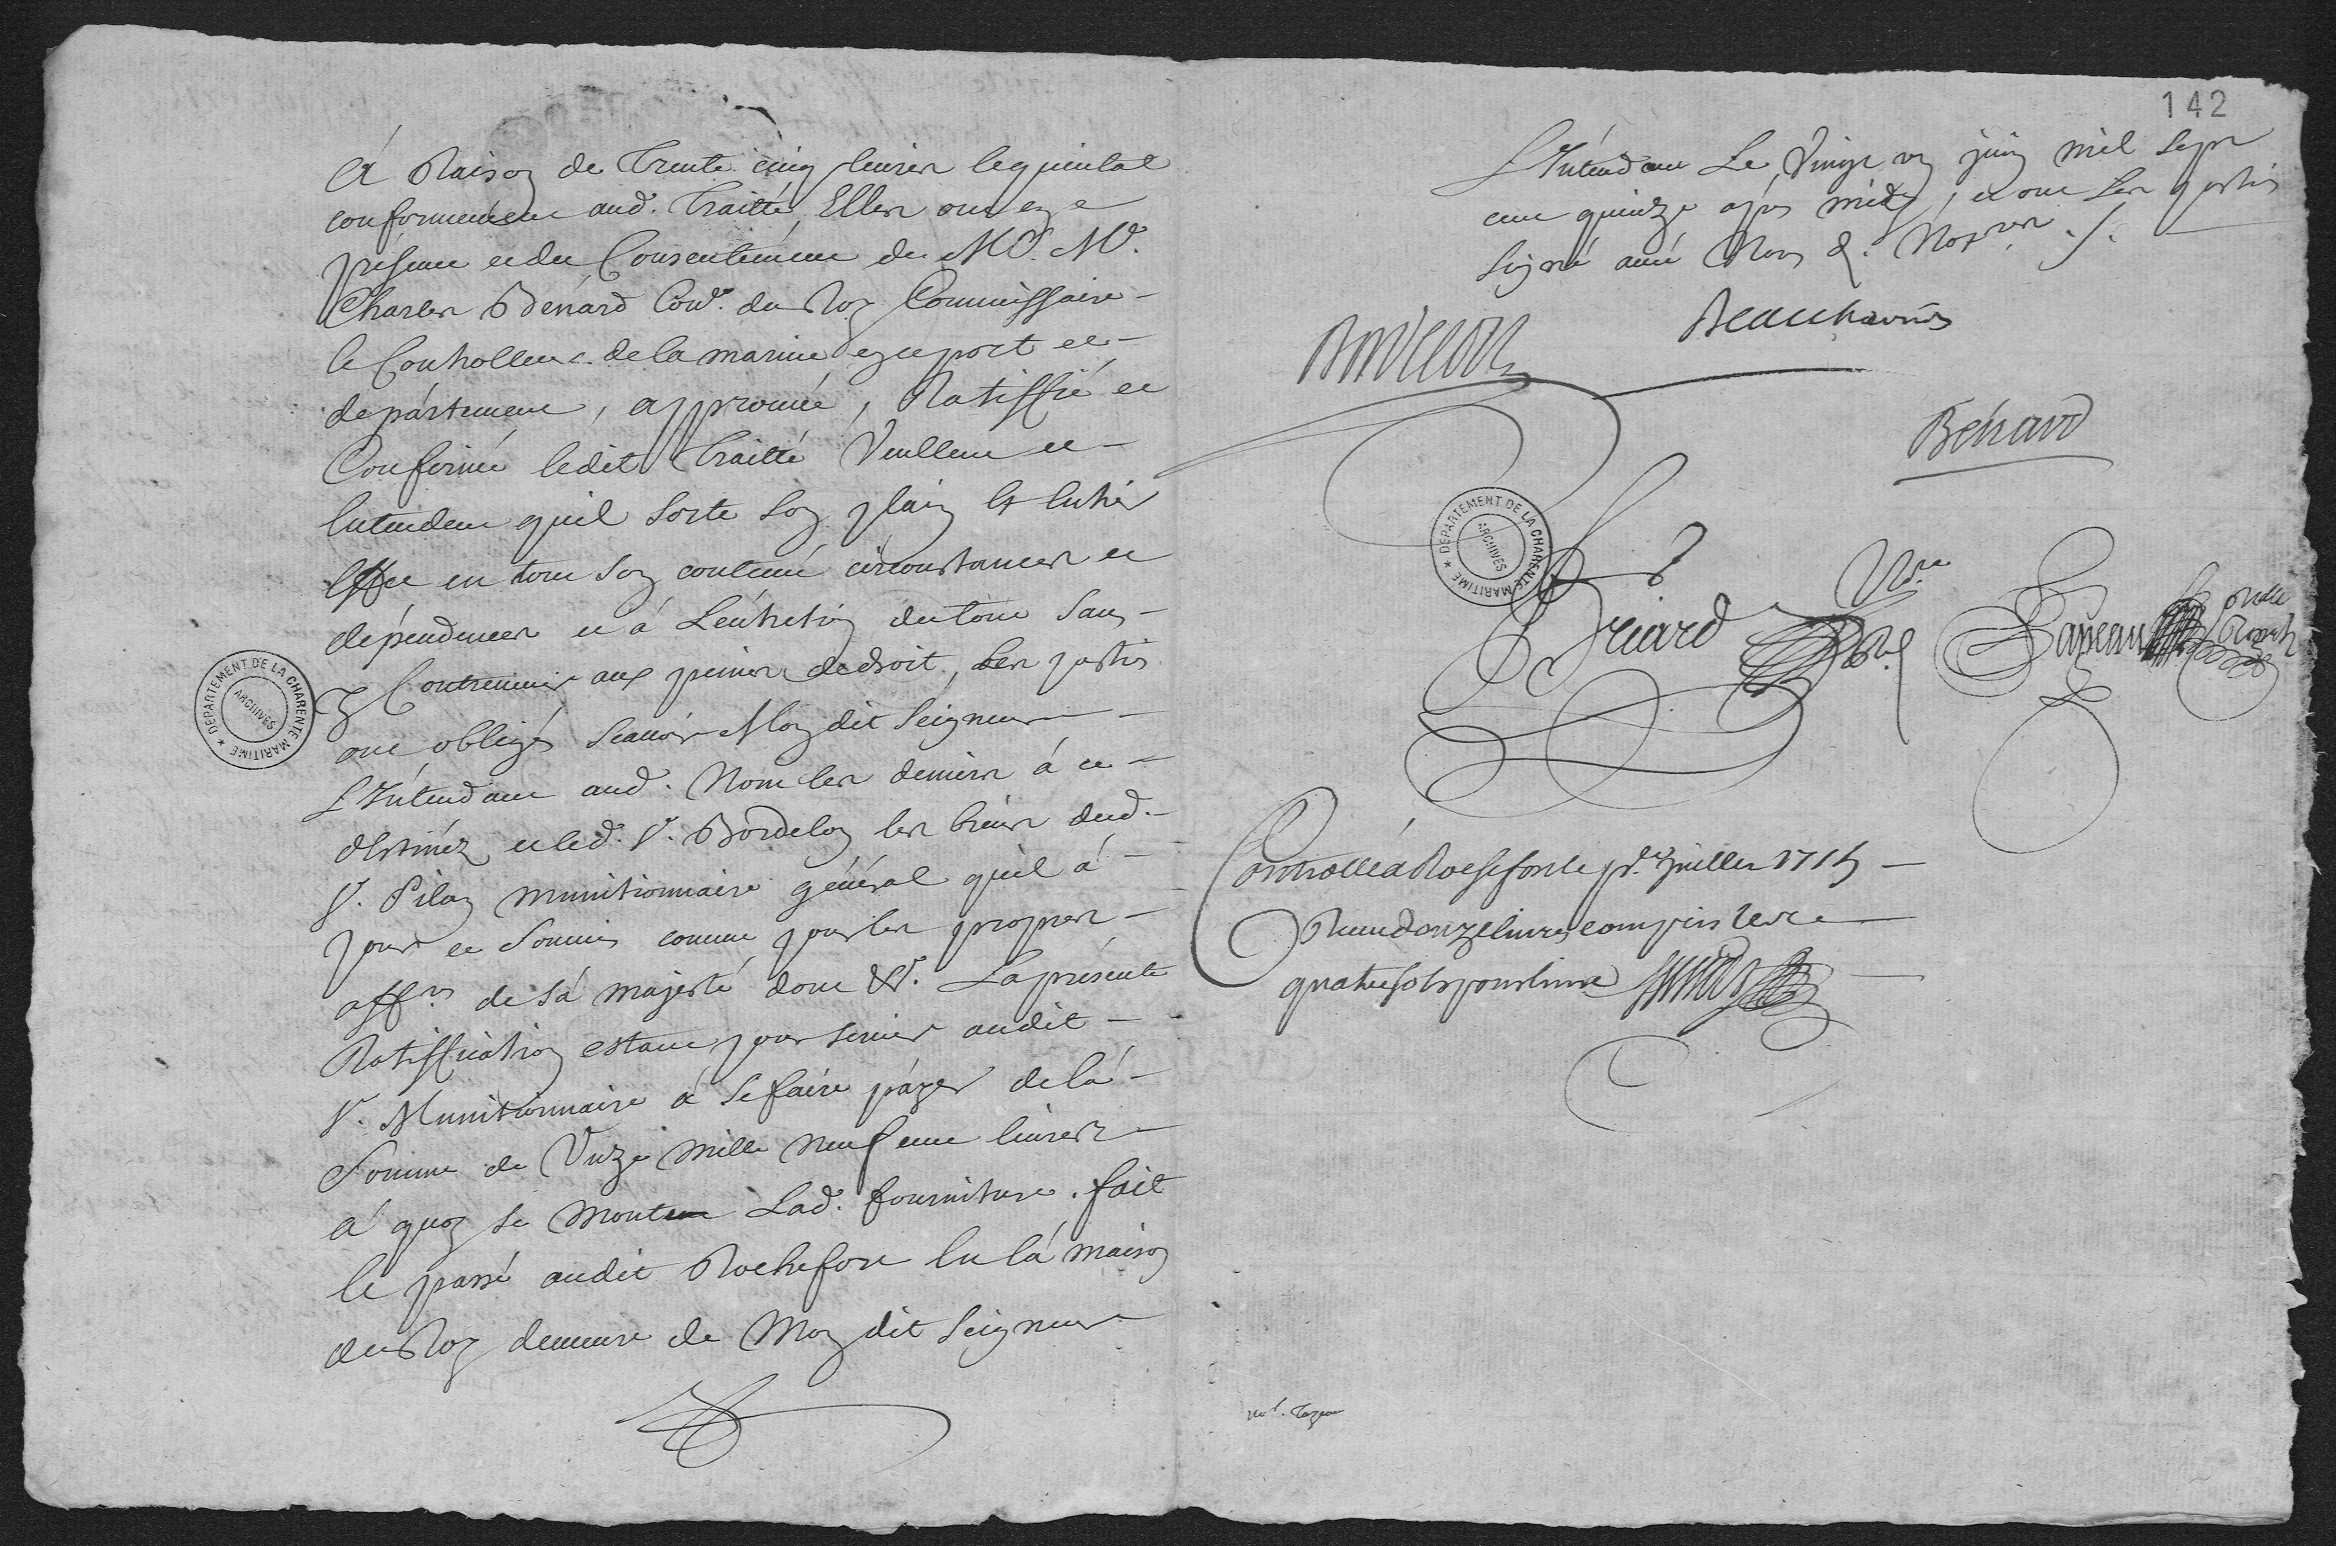 A Raison de Trente cinq livres le quintal
conformement aud. Traitté, Elles ont en
présence et du Consentement de Me. Me.
Charles Bénard Conr. du Roy Commissaire
le Controlleur de la marine en ce port et
département, approuvé, Ratiffié et
Confirmé ledit Traitté Veullent et
Entendent quil sorte son plain Et entier
Effet en tout son contenu circonstances et
dépendences et á Lentretien du tout sans
y Contrevenir aux peines de droit, Les parties
ont obligés scavoir Mon dit Seigneur
L'Intendant aud. Nom les deniers á ce
destinéz et led. Sr. Bordelon les biens dud.
Sr. munitionnaire général quil á
pour et Soumis comme pour les propres
affres de sá majesté dont &c. La présente
Ratiffication estant pour servir audit
Sr. Munitionnaire á se faire páyer de lá
Somme de Unze mille neuf cent livres
á quoy se monte Lad. fourniture. fait
le passé audit Rochefort En lá maison
du Roy demeure de Mon dit Seigneur
142
L'Intendant Le Vingt un juin mil sept
cent quinze apres midy, et ont Les parties
Signé avec Nous d. Nores ./.
Beauharnois
Bordelon
Bénard
Nre
Briard
Rl
Controllé á Rochefort le pr. Juillet 1715
Receu douze livres compris les
quatre sols pour livre
DEPARTEMENT DE LA CHARENTE MARITIME
ARCHIVES
DEPARTEMENT DE LA CHARENTE MARITIME
ARCHIVES